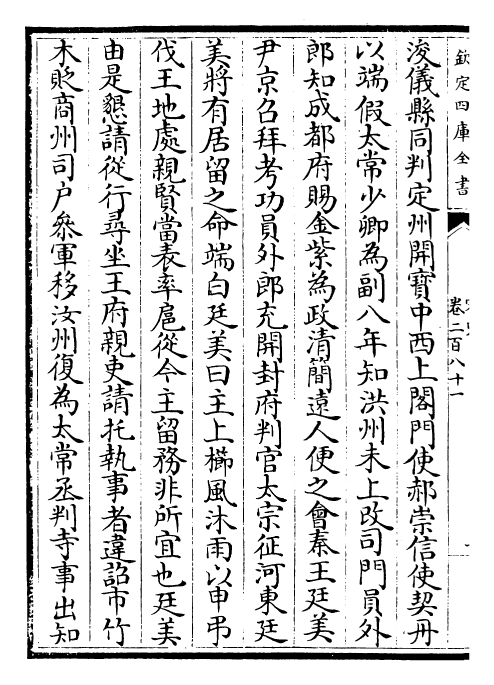 欽定四庫全書
卷二百八十一
浚儀縣同判定州開寶中西上閤門使郝崇信使契丹
以端假太常少卿為副八年知洪州未上改司門員外
郎知成都府賜金紫為政清簡遠人便之會秦王廷美
尹京召拜考功員外郎充開封府判官太宗征河東廷
美將有居留之命端白廷美曰主上櫛風沐雨以申弔
伐王地處親賢當表率扈從今主留務非所宜也廷美
由是懇請從行尋坐王府親吏請托執事者違詔市竹
木貶商州司户叅軍移汝州復為太常丞判寺事出知